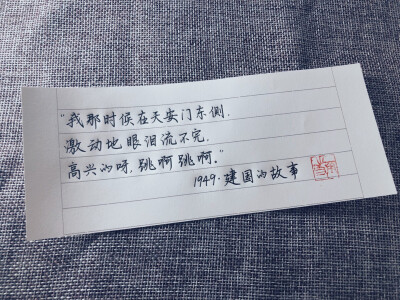 "我那时候在天安门东侧,
激动地眼泪流不完,
高兴的呀,跳啊跳啊。"
1949·建国的故事